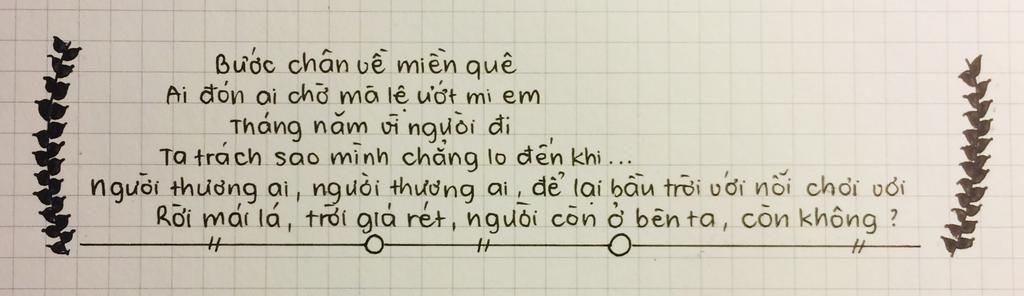 Bước chân về miền quê
Ai đón ai chờ mà lệ ướt mi em
Tháng năm vì người đi
Ta trách sao mình chẳng lo đến khi...
Người thương ai, người thương ai, để lại bầu trời với nỗi chơi vơi
Rời mái lá, trời giá rét, người còn ở bên ta, còn không ?